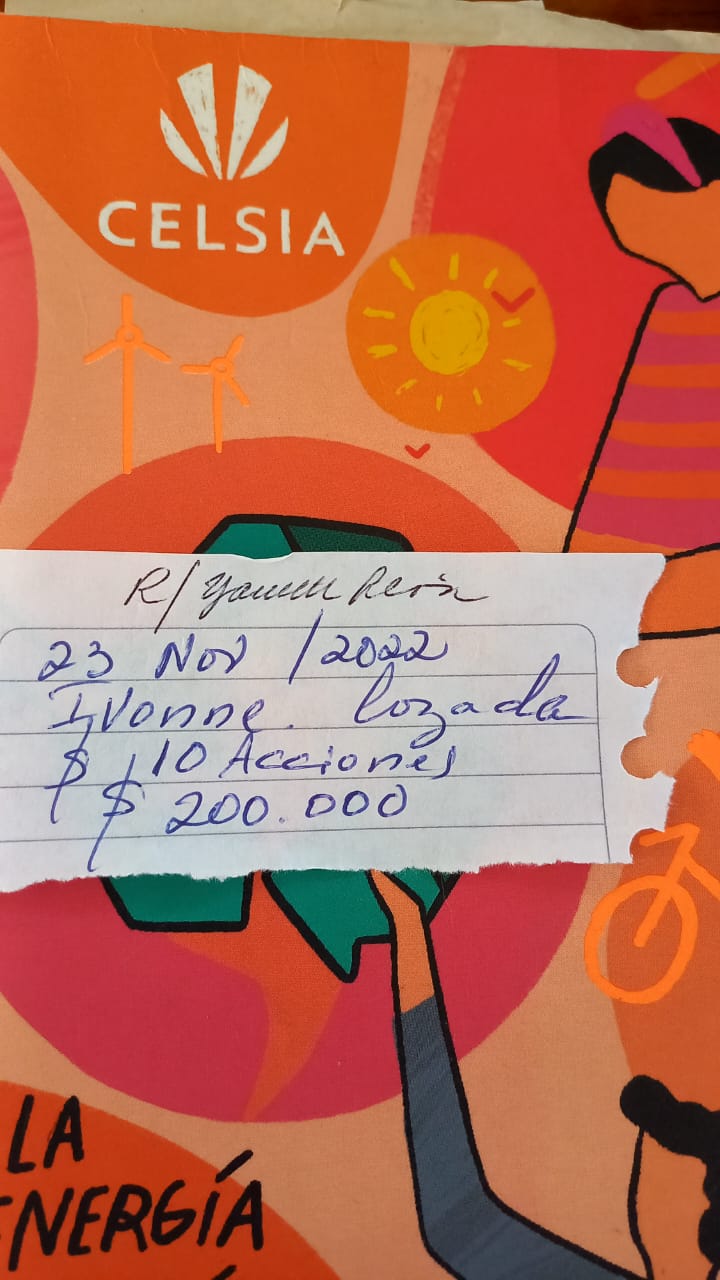 CELSIA
R/
23 Nov /2022
Ivonne. lozada
$ 10 Acciones
$ 200.000
LA
ENERGÍA